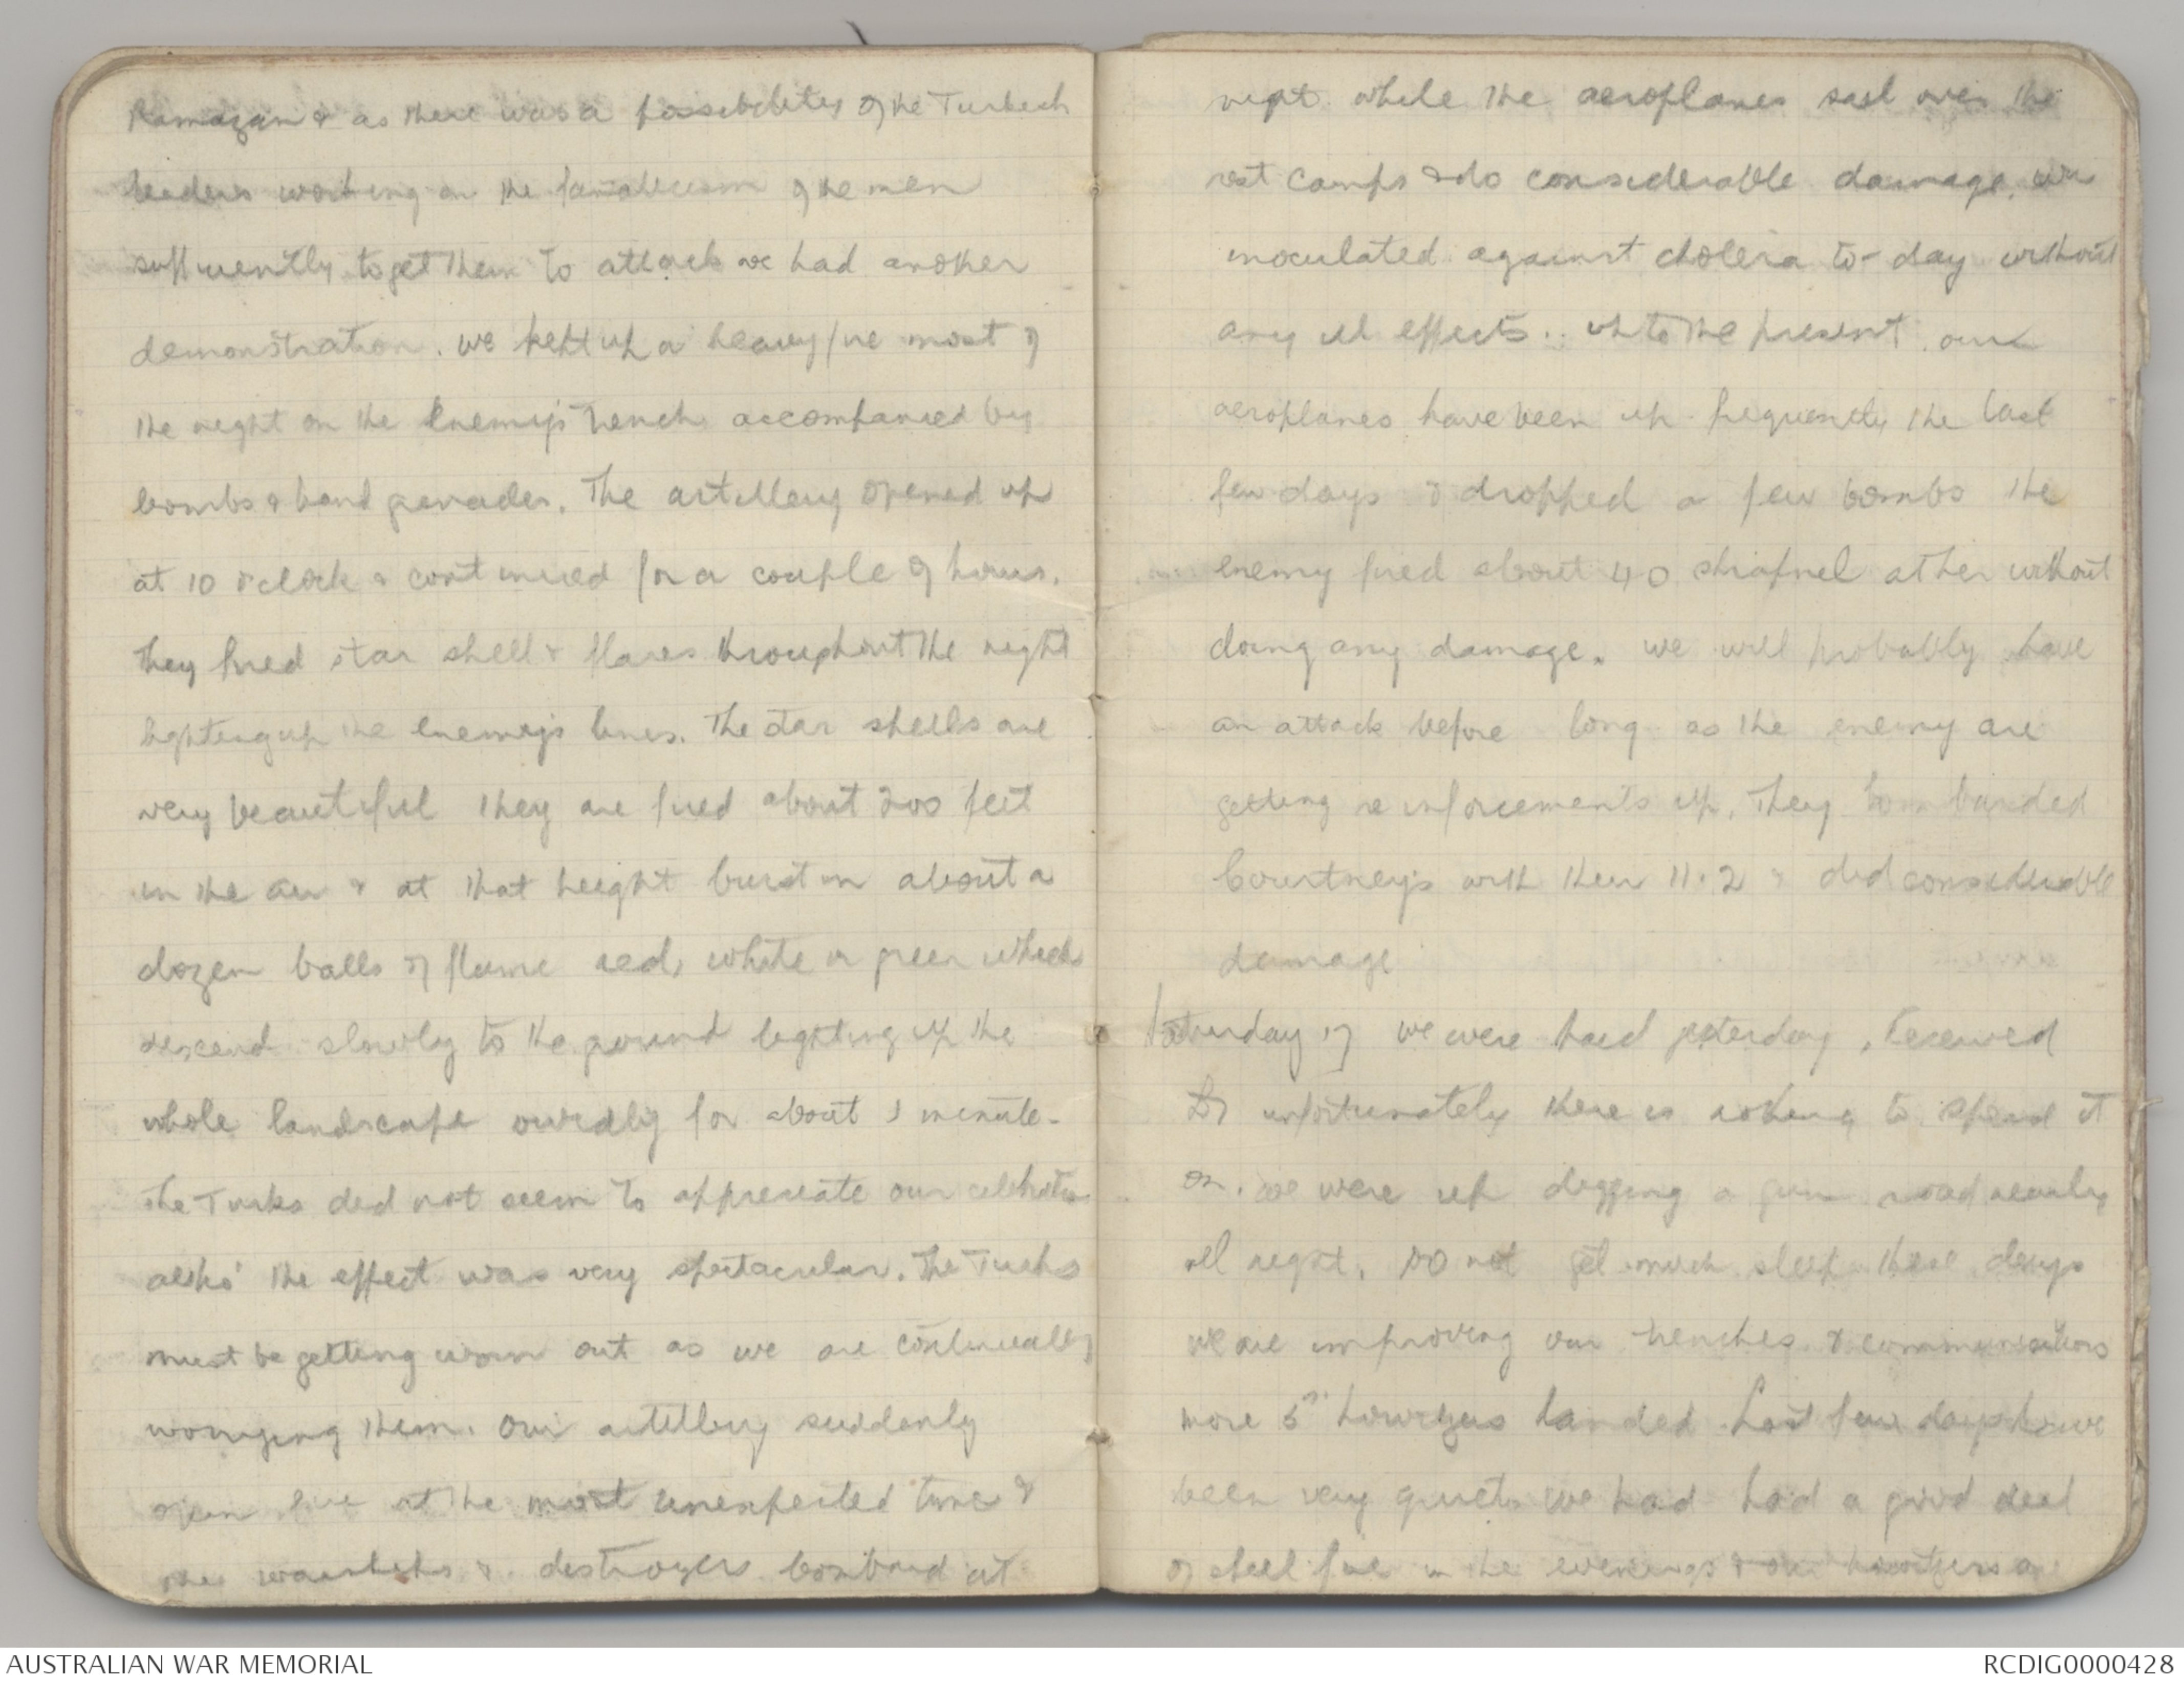 Ramazan & as there was a possibility of the Turkish
leaders working on the fanaticism of the men
sufficiently to get them to attack we had another
demonstration. we kept up a heavy fire most of
the night on the Enemy's trench accompanied by
bombs & hand grenades. The artillery opened up
at 10 o'clock & continued for a couple of hours.
They fired star shell & flares throughout the night
lighting up the enemy's lines. The star shells are
very beautiful they are fired about 200 feet
in the air & at that height burst in about a
dozen balls of flame red, white or green which
descend slowly to the ground lighting up the
whole landscape for about 1 minute.
The Turks did not seem to appreciate our celebration
altho' the effect was very spectacular. The Turks
must be getting worn out as we are continually
worrying them. Our artillery suddenly
open fire at the most unexpected time &
the warships & destroyers bombard at
night while the aeroplanes sail over the
rest camps & do considerable damage. We
inoculated against cholera to-day without
any ill effects.. up to the present. our
aeroplanes have been up frequently the last
few days & dropped a few bombs the
enemy fired about 40 shrapnel at her without
doing any damage. we will probably have
an attack before long as the enemy are
getting reinforcements up. They bombarded
Courtney's with their 11.2 & did considerable
damage
Saturday 17 we were paid yesterday, received
unfortunately there is nothing to spend it
on. we were up digging a gun road nearly
all night. Do not get much sleep these days
we are improving our trenches & communications
more 5" howitzers landed. Last few days have
been very quiet we had had a good deal
of shell fire in the evenings & our howitzers are